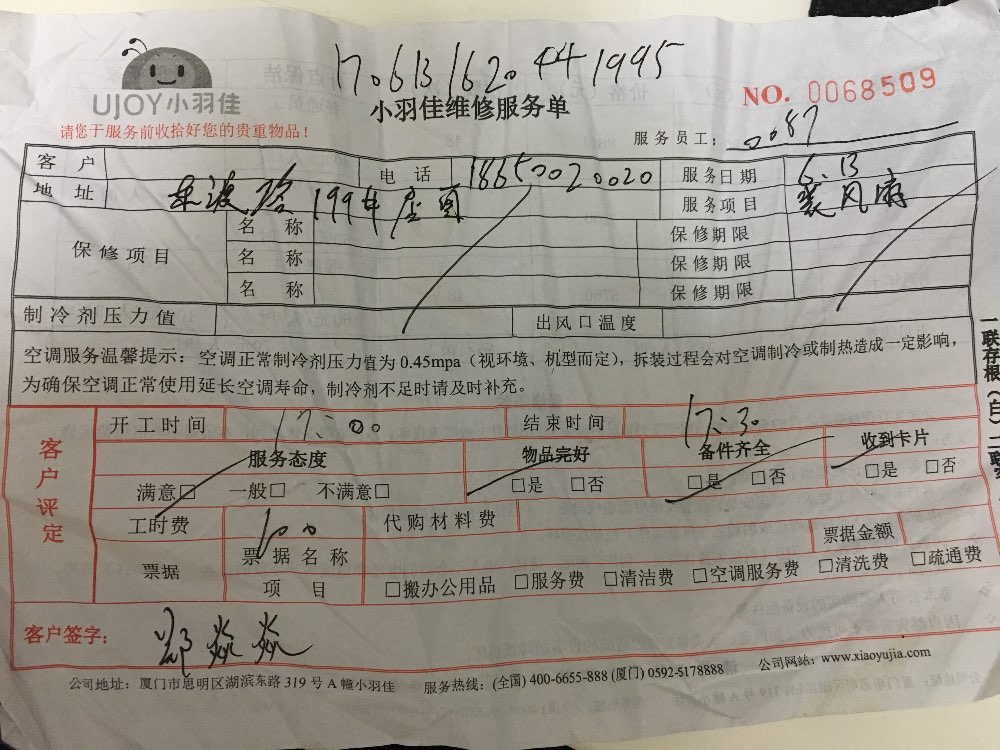 17.06131620441995
UJOY小羽佳
小羽佳维修服务单
NO. 0068509
请您于服务前收拾好您的贵重物品！
服务员工： 0087
客 户 电 话 18650020020 服务日期 6.13
地 址 199 服务项目 装风扇
保修项目 名 称 保修期限
名 称 保修期限
名 称 保修期限
制冷剂压力值 出风口温度
空调服务温馨提示：空调正常制冷剂压力值为 0.45mpa（视环境、机型而定），拆装过程会对空调制冷或制热造成一定影响，
为确保空调正常使用延长空调寿命，制冷剂不足时请及时补充。
一联存根（白）二联
客户评定
开工时间 17:00 结束时间 17:30
服务态度 物品完好 备件齐全 收到卡片
满意□ 一般□ 不满意□ □是 □否 □是 □否 □是 □否
工时费 100 代购材料费
票据 票据名称 票据金额
项 目 □搬办公用品 □服务费 □清洁费 □空调服务费 □清洗费 □疏通费
客户签字： 郑焱焱
公司地址：厦门市思明区湖滨东路 319 号 A 幢小羽佳 服务热线：(全国) 400-6655-888 (厦门) 0592-5178888 公司网站：www.xiaoyujia.com